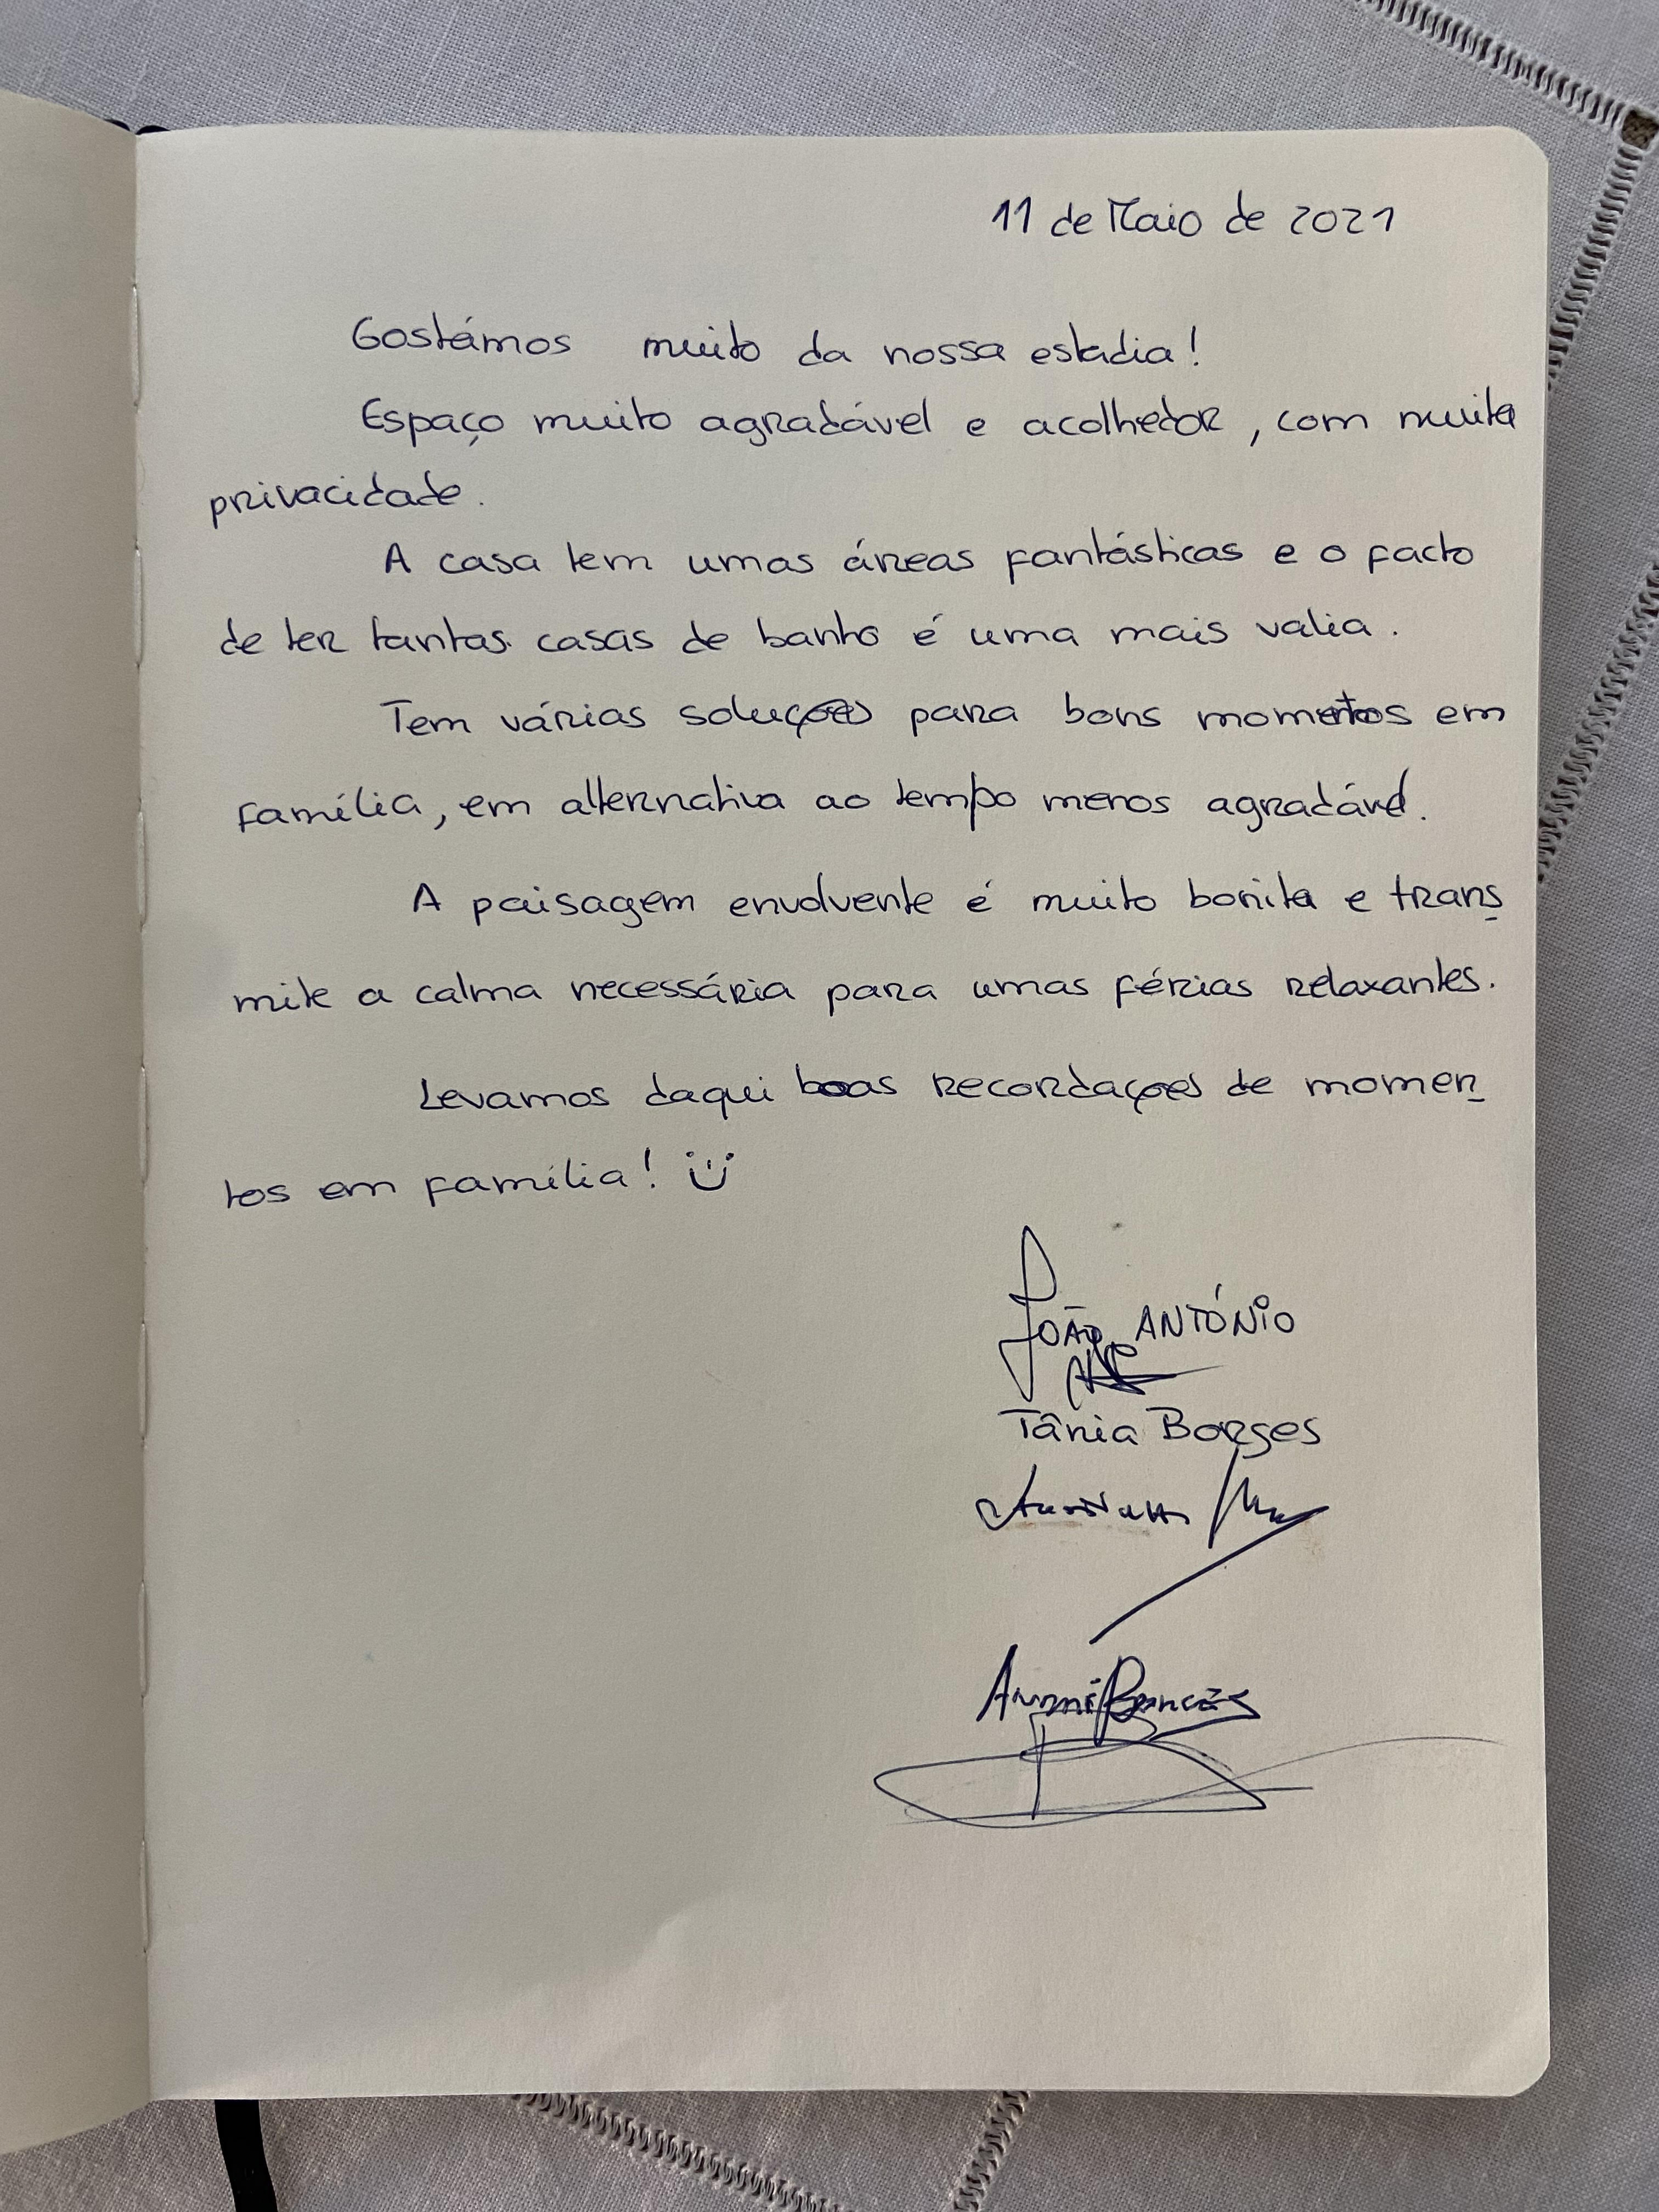 11 de Maio de 2021
Gostámos muito da nossa estadia!
Espaço muito agradável e acolhedor, com muita
privacidade.
A casa tem umas áreas fantásticas e o facto
de ter tantas casas de banho é uma mais valia.
Tem várias soluções para bons momentos em
família, em alternativa ao tempo menos agradável.
A paisagem envolvente é muito bonita e trans
mite a calma necessária para umas férias relaxantes.
Levamos daqui boas recordações de momen
tos em família! :)
João ANTÓNIO
Tânia Borges